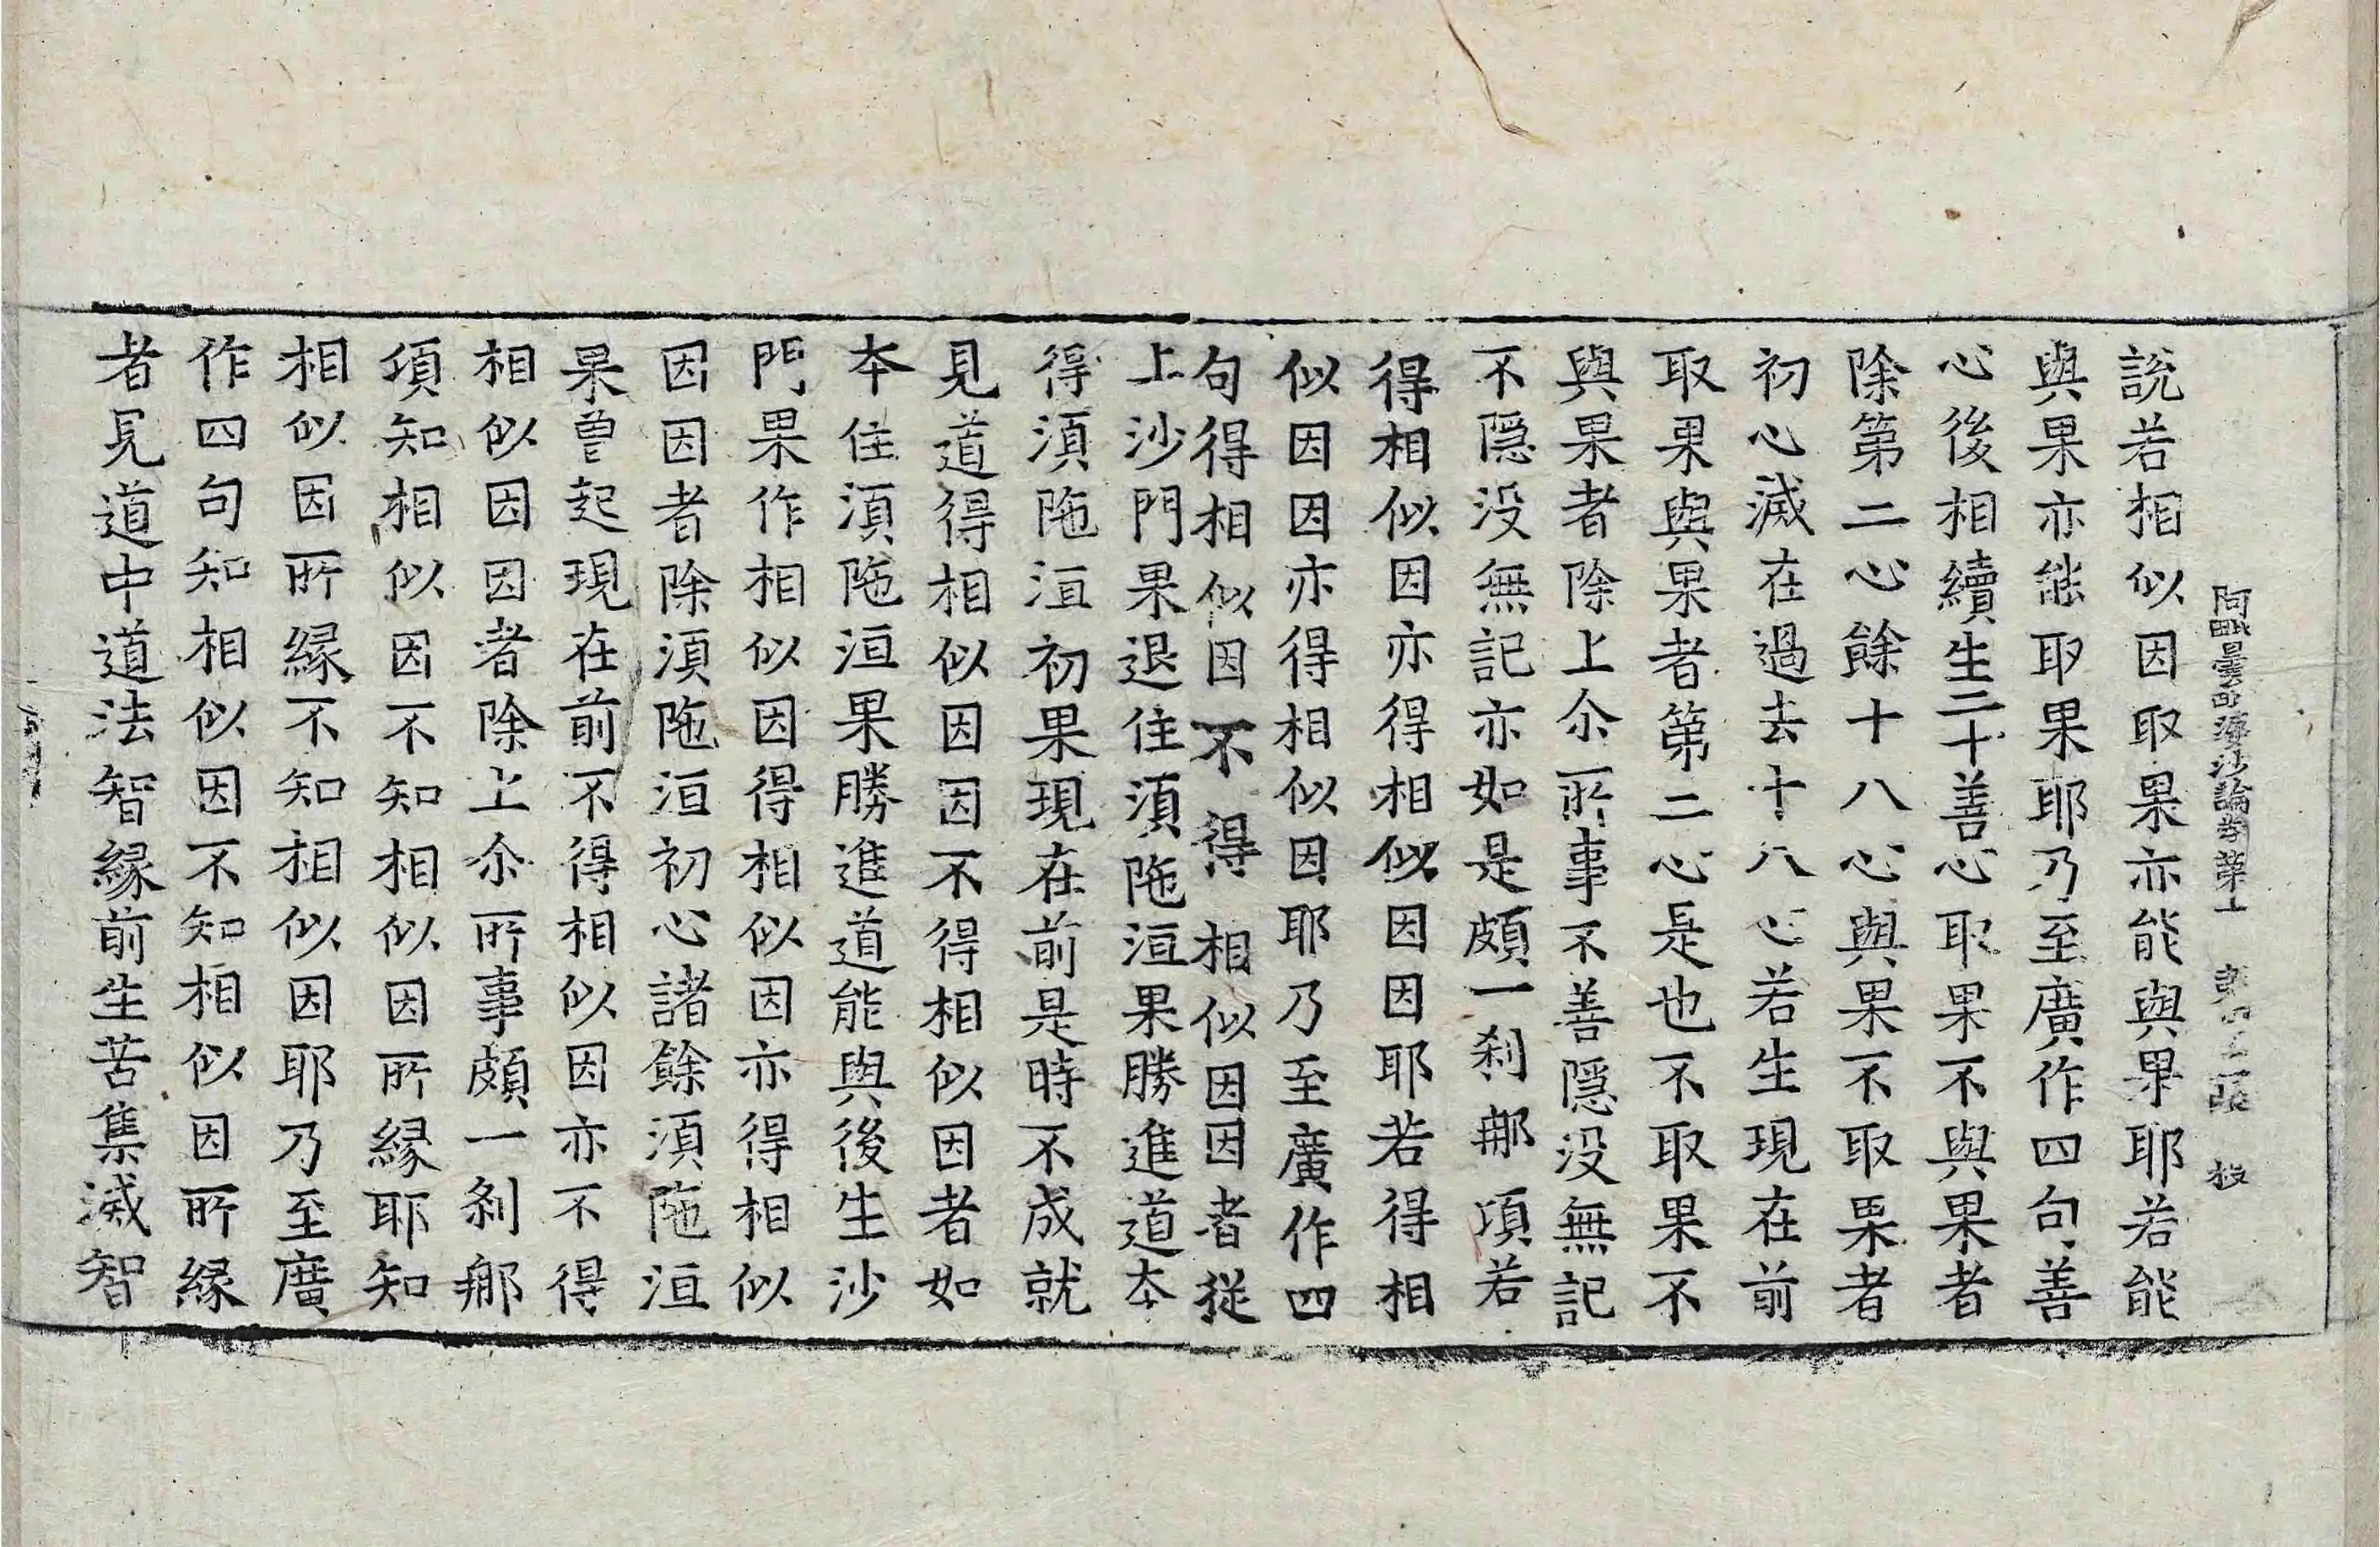 阿毗曇毗婆沙論卷第十
說若相似因取果亦能與果耶若能
與果亦能取果耶乃至廣作四句善
心後相續生二十善心取果不與果者
除第二心餘十八心與果不取果者
初心滅在過去十八心若生現在前
取果與果者第二心是也不取果不
與果者除上尒所事不善隱没無記
不隱没無記亦如是頗一刹那項若
得相似因亦得相似因因耶若得相
似因因亦得相似因耶乃至廣作四
句得相似因不得相似因因者從
上沙門果退住湏陁洹果勝進道夲
得湏陁洹初果現在前是時不成就
見道得相似因因不得相似因者如
夲住湏陁洹果勝進道能與後生沙
門果作相似因得相似因亦得相似
因因者除湏陁洹初心諸餘湏陁洹
果曾起現在前不得相似因亦不得
相似因因者除上尒所事頗一刹那
項知相似因不知相似因所緣耶知
相似因所緣不知相似因耶乃至廣
作四句知相似因不知相似因所緣
者見道中道法智緣前生苦集滅智